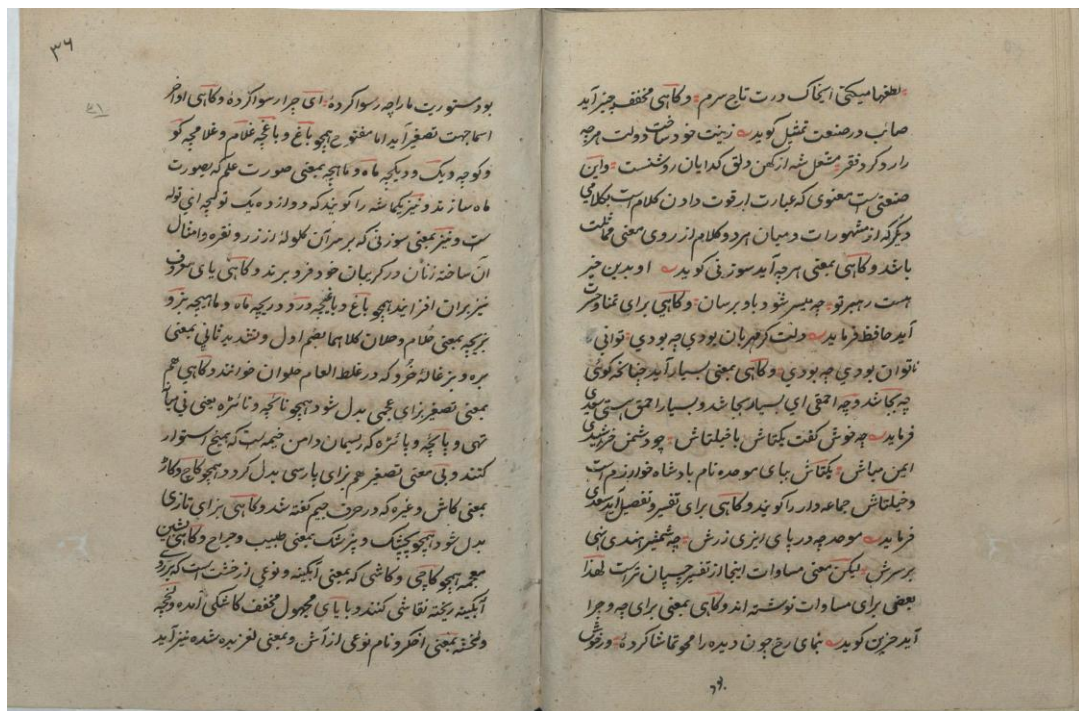 لطفها میکنی ایخاک درت تاج سرم وکاهی مخفف چیز آید
صائب در صنعت تمثیل کوید زینت خود ساخت دولت هرچه
را رد کرد فقر مشعل شه از کهن دلق کدایان روشنست واین
صنعتی است معنوی که عبارت از قوت دادن کلام است بکلامی
دیکر که از مشهورات و میان هر دو کلام از روی معنی مماثلت
باشد وکاهی بمعنی هرچه آید سوزنی کوید او بدین خیر
هست رهبر تو چه میسر شود باو برسان وکاهی برای تمنا وحسرت
آید حافظ فرماید دلت کر مهربان بودی چه بودی توانی
ناتوان بودی چه بودی وکاهی بمعنی بسیار آید چنانکه کوئی
چه بجا شد وچه احمقی ای بسیار بجا شد وبسیار احمق هستی سعدی
فرماید چه خوش کفت یکتاش با خیلتاش چو دشمن خراشیدی
ایمن مباش یکتاش ببای موحده نام بادشاه خوارزم است
وخیلتاش جماعه دار را کویند وکاهی برای تفسیر وتفصیل آید سعدی
فرماید موحد چه در پای ریزی زرش چه شمشیر هندی نهی
بر سرش لیکن معنی مساوات اینجا از تفسیر چسپان تر است لهذا
بعضی برای مساوات نوشته اند وکاهی بمعنی برای چه و چرا
آید حزین کوید بنمای رخ چون دیده را محو تماشا کرده ور خوش
۳۶
بود مستوریت ما را چه رسوا کردهٔ ای چرا رسوا کردهٔ وکاهی اواخر
اسما جهت تصغیر آید اما مفتوح همچو باغ و باغچه غلام و غلامچه کو
و کوچه و دیک و دیکچه ماه و ماهچه بمعنی صورت علم که بصورت
ماه سازند و نیز یکماشه را کویند که دوازده یک توکچه ای توله
ست و نیز بمعنی سوزنی که بر سر آن کلولهٔ از زر و نقره وامثال
آن ساخته زنان در کریبان خود فرو برند وکاهی یای معروف
نیز بران افزایند همچو باغ و باغیچه ودر و دریچه ماه و ماهیچه بز و
بزیچه بمعنی حلام وحلان کلاهما بضم اول وتشدید ثانی بمعنی
بره و بزغالهٔ خرد که در غلط العام حلوان خوانند وکاهی هم
بمعنی تصغیر بزای عجمی بدل شود همچو نائچه و نائژه یعنی نی میان
تهی و پائچه و پائژه که ریسمان دامن خیمه است که بمیخ استوار
کنند و بی معنی تصغیر هم بزای پارسی بدل کردد همچو کاج وکاژ
بمعنی کاش وغیره که در حرف جیم کفته شد وکاهی بزای تازی
بدل شود همچو پچشک و پزشک بمعنی طبیب وجراح وکاهی بشین
معجمه همچو کاچی و کاشی که بمعنی آبکینه و نوعی از خشت است که بر روی
آبکینه ریخته نقاشی کنند و با یای مجهول مخفف کاشکی آمده ولخچه
ولخشه بمعنی اخکر و نام نوعی از آش و بمعنی لغزیده شده نیز آید